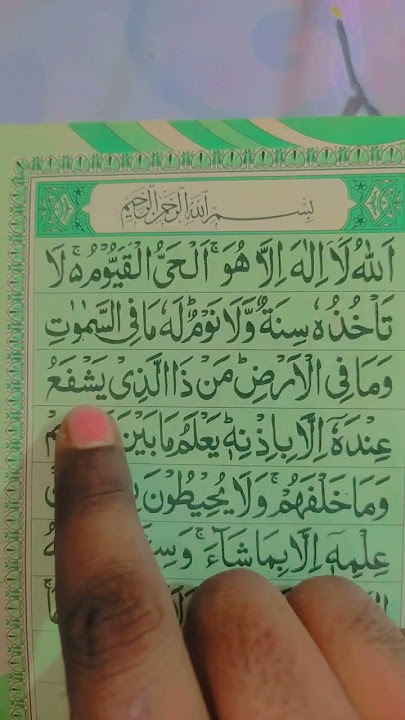 بِسْمِ اللّٰهِ الرَّحْمٰنِ الرَّحِيْمِ
اَللّٰهُ لَاۤ اِلٰهَ اِلَّا هُوَۚ اَلْحَیُّ الْقَیُّوْمُ ۬ۚ لَا
تَاْخُذُهٗ سِنَةٌ وَّلَا نَوْمٌؕ لَهٗ مَا فِی السَّمٰوٰتِ
وَمَا فِی الْاَرْضِؕ مَنْ ذَا الَّذِیْ یَشْفَعُ
عِنْدَهٗۤ اِلَّا بِاِذْنِهٖؕ یَعْلَمُ مَا بَیْنَ
وَمَا خَلْفَهُمْۚ وَلَا یُحِیْطُوْنَ
عِلْمِهٖۤ اِلَّا بِمَا شَآءَۚ